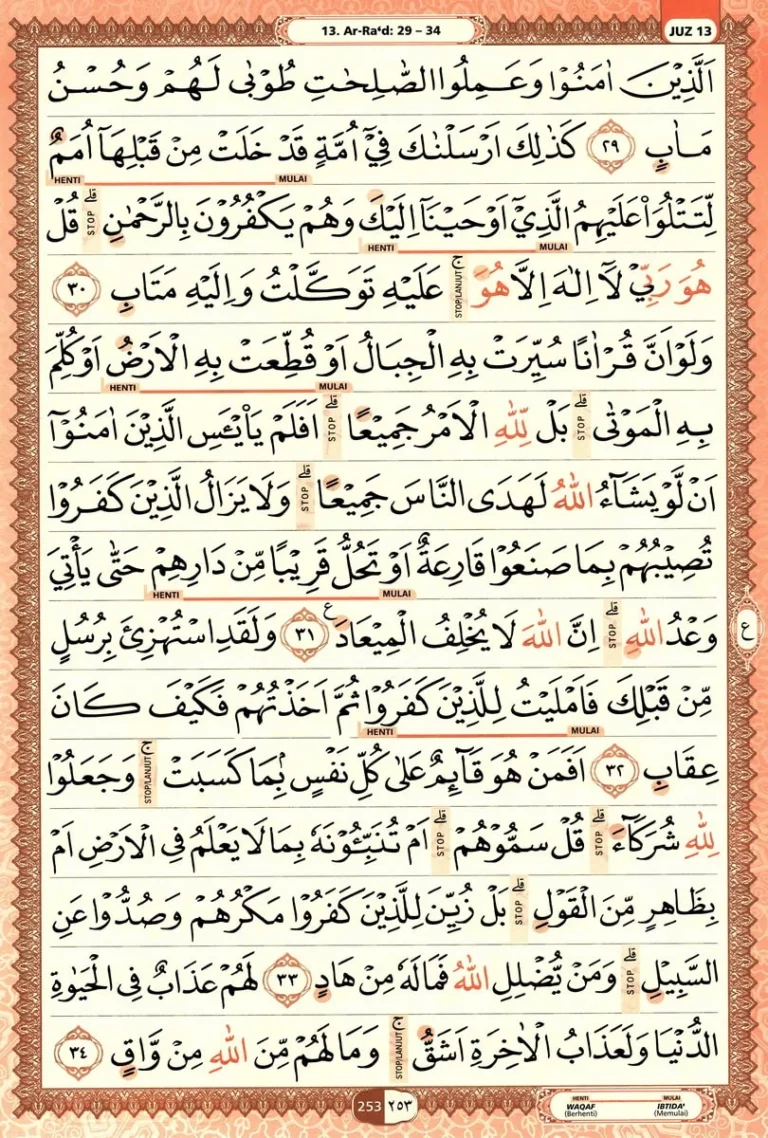 13. Ar-Ra‘d: 29 – 34
JUZ 13
اَلَّذِيْنَ اٰمَنُوْا وَعَمِلُوا الصّٰلِحٰتِ طُوْبٰى لَهُمْ وَحُسْنُ
مَاٰبٍ ٢٩ كَذٰلِكَ اَرْسَلْنٰكَ فِيْٓ اُمَّةٍ قَدْ خَلَتْ مِنْ قَبْلِهَآ اُمَمٌ
HENTI MULAI
لِّتَتْلُوَا۟ عَلَيْهِمُ الَّذِيْٓ اَوْحَيْنَآ اِلَيْكَ وَهُمْ يَكْفُرُوْنَ بِالرَّحْمٰنِ ۗ STOP قُلْ
HENTI MULAI
هُوَ رَبِّيْ لَآ اِلٰهَ اِلَّا هُوَ ۚ STOP/LANJUT عَلَيْهِ تَوَكَّلْتُ وَاِلَيْهِ مَتَابِ ٣٠
وَلَوْ اَنَّ قُرْاٰنًا سُيِّرَتْ بِهِ الْجِبَالُ اَوْ قُطِّعَتْ بِهِ الْاَرْضُ اَوْ كُلِّمَ
HENTI MULAI
بِهِ الْمَوْتٰى ۗ STOP بَلْ لِّلّٰهِ الْاَمْرُ جَمِيْعًا ۗ STOP اَفَلَمْ يَا۟يْـَٔسِ الَّذِيْنَ اٰمَنُوْٓا
اَنْ لَّوْ يَشَاۤءُ اللّٰهُ لَهَدَى النَّاسَ جَمِيْعًا ۗ STOP وَلَا يَزَالُ الَّذِيْنَ كَفَرُوْا
تُصِيْبُهُمْ بِمَا صَنَعُوْا قَارِعَةٌ اَوْ تَحُلُّ قَرِيْبًا مِّنْ دَارِهِمْ حَتّٰى يَأْتِيَ
HENTI MULAI
وَعْدُ اللّٰهِ ۗ STOP اِنَّ اللّٰهَ لَا يُخْلِفُ الْمِيْعَادَ ع ٣١ وَلَقَدِ اسْتُهْزِئَ بِرُسُلٍ
ع
مِّنْ قَبْلِكَ فَاَمْلَيْتُ لِلَّذِيْنَ كَفَرُوْا ثُمَّ اَخَذْتُهُمْ فَكَيْفَ كَانَ
HENTI MULAI
عِقَابِ ٣٢ اَفَمَنْ هُوَ قَاۤىِٕمٌ عَلٰى كُلِّ نَفْسٍۢ بِمَا كَسَبَتْ ۚ STOP/LANJUT وَجَعَلُوْا
لِلّٰهِ شُرَكَاۤءَ ۗ STOP قُلْ سَمُّوْهُمْ ۗ STOP اَمْ تُنَبِّـُٔوْنَهٗ بِمَا لَا يَعْلَمُ فِى الْاَرْضِ اَمْ
بِظَاهِرٍ مِّنَ الْقَوْلِ ۗ STOP بَلْ زُيِّنَ لِلَّذِيْنَ كَفَرُوْا مَكْرُهُمْ وَصُدُّوْا عَنِ
السَّبِيْلِ ۗ STOP وَمَنْ يُّضْلِلِ اللّٰهُ فَمَا لَهٗ مِنْ هَادٍ ٣٣ لَهُمْ عَذَابٌ فِى الْحَيٰوةِ
الدُّنْيَا وَلَعَذَابُ الْاٰخِرَةِ اَشَقُّ ۚ STOP/LANJUT وَمَا لَهُمْ مِّنَ اللّٰهِ مِنْ وَّاقٍ ٣٤
253 ٢٥٣
HENTI MULAI
WAQAF IBTIDA'
(Berhenti) (Memulai)